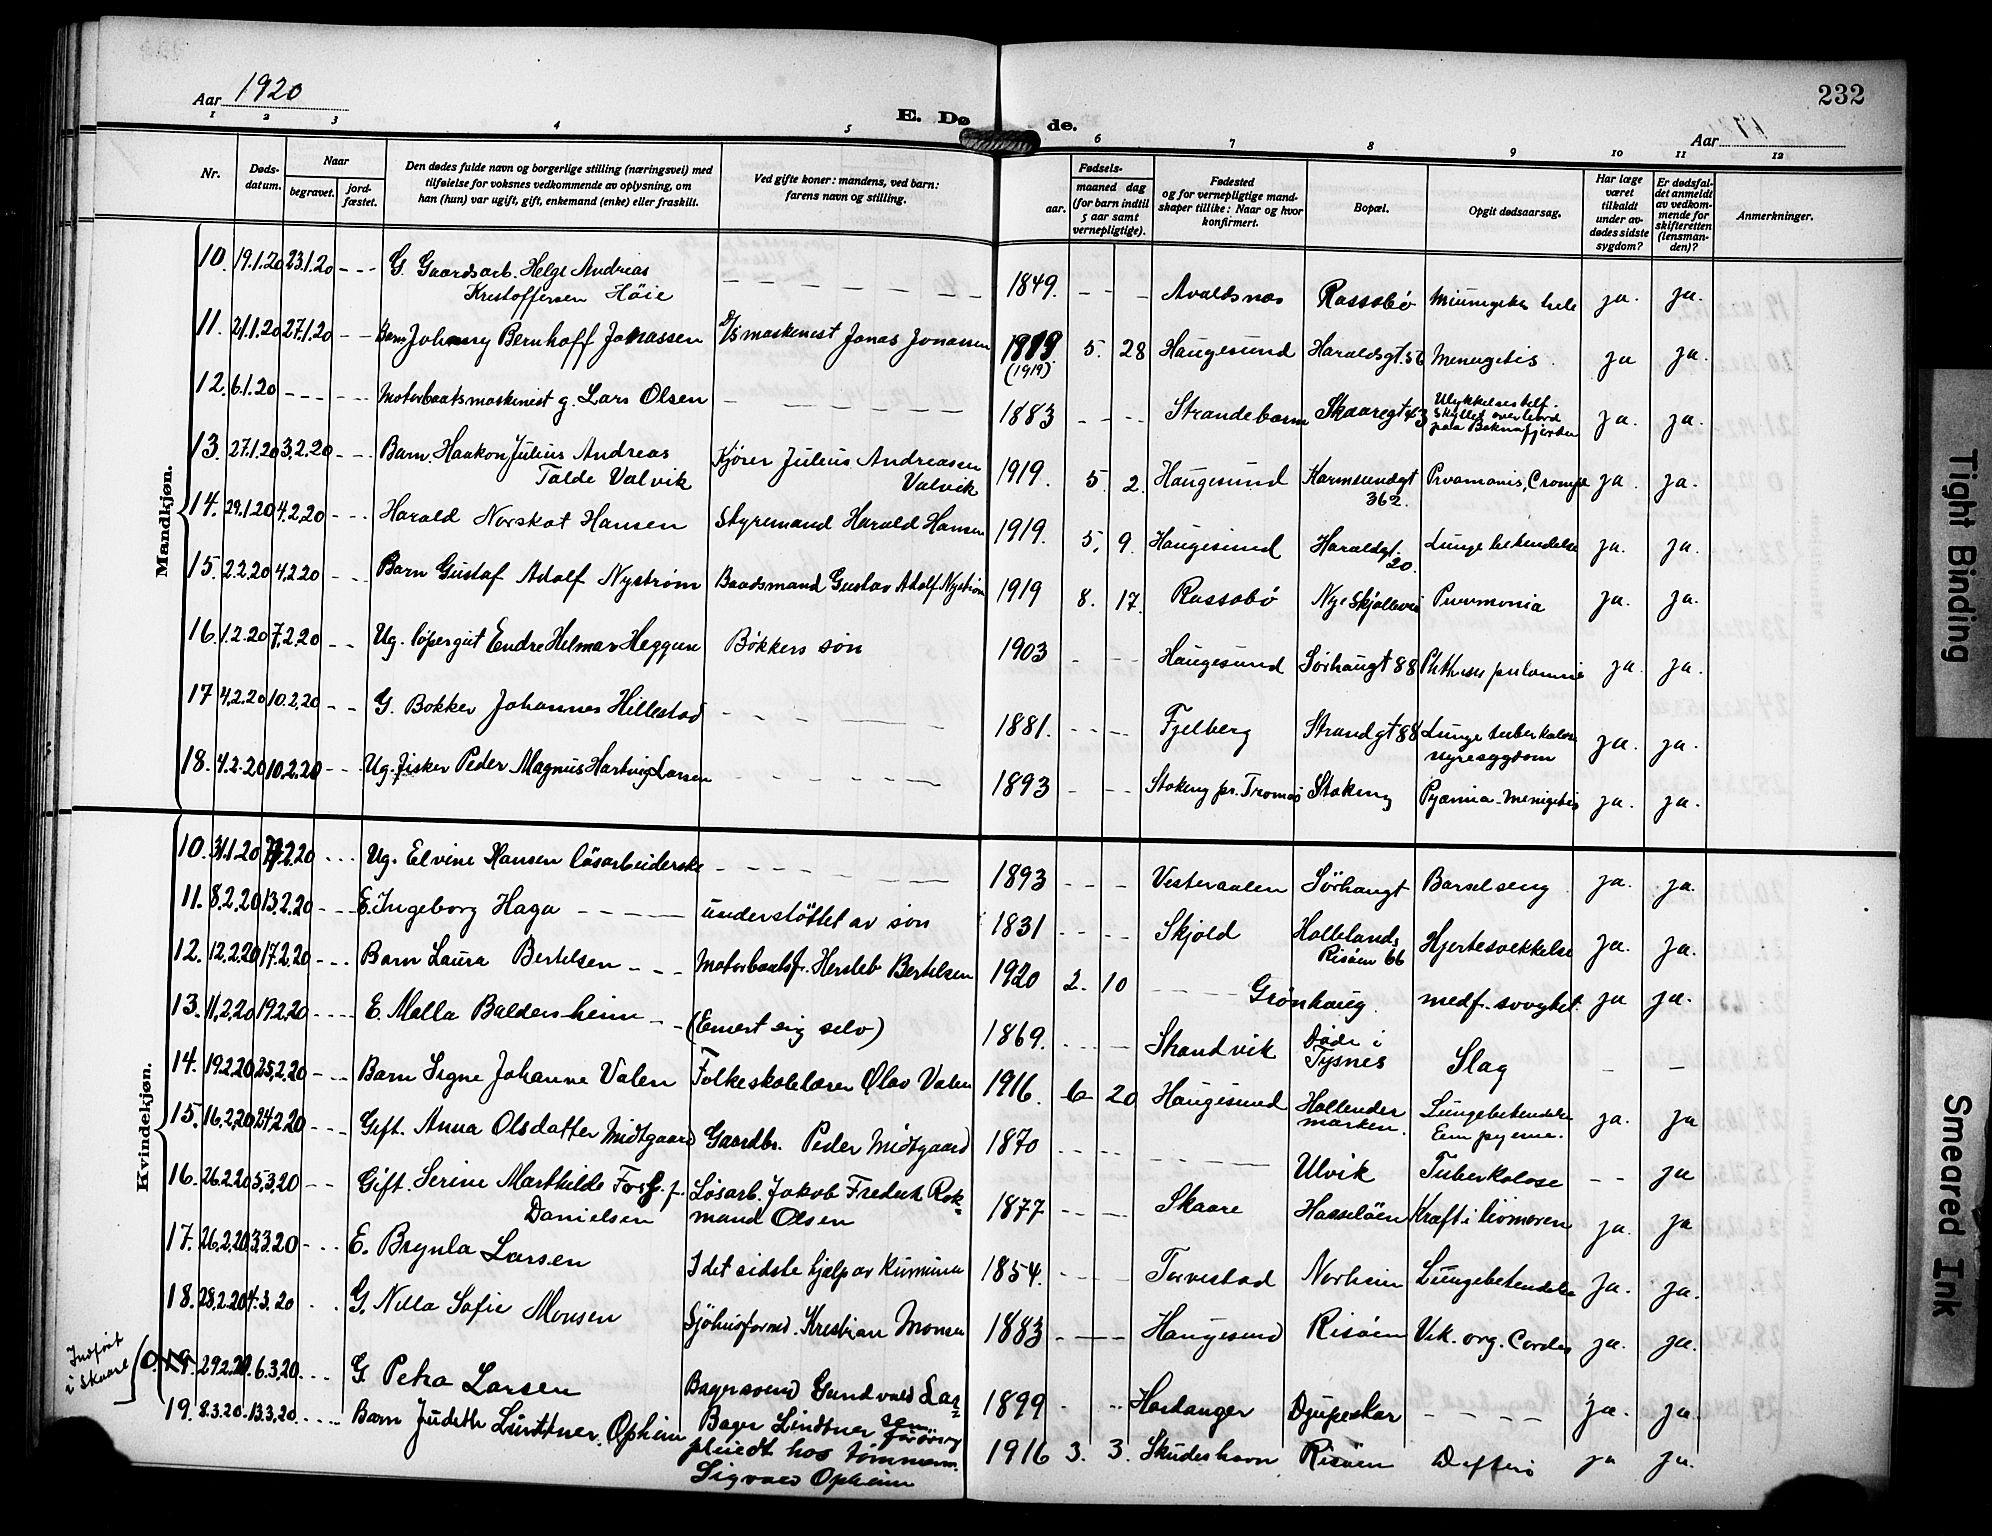 232
Aar 1920
E. Døde.
Aar
1 2 3 4 5 6 7 8 9 10 11 12
Nr.
Dødsdatum.
Naar
begravet.
jordfæstet.
Den dødes fulde navn og borgerlige stilling (næringsvei) med
tilføielse for voksnes vedkommende av oplysning, om
han (hun) var ugift, gift, enkemand (enke) eller fraskilt.
Ved gifte koner: mandens, ved barn:
farens navn og stilling.
Fødsels-
aar.
maaned dag
(for barn indtil
5 aar samt
vernepligtige).
Fødested
og for vernepligtige mand-
skaper tillike: Naar og hvor
konfirmert.
Bopæl.
Opgit dødsaarsag.
Har læge
været
tilkaldt
under av-
dødes sidste
sygdom?
Er dødsfal-
det anmeldt
av vedkom-
mende for
skifteretten
(lensman-
den)?
Anmerkninger.
Mandkjøn.
10. 19.1.20 23.1.20 - - - G. Gaardsarb. Helge Andreas 1849. - - - Avaldsnes Rossabø ja. ja.
Kristoffersen Höie
11. 21.1.20 27.1.20 - - Barn Johnny Bernhoff Jonassen D/S maskinist Jonas Jonassen 1919 5. 28 Haugesund Haraldsgt. 56 Meningitis. ja ja.
(1919)
12. 6.1.20 - - - Motorbaatsmaskinist g. Lars Olsen 1883 - - - Strandebarm Skaaregt 43 Ulykkelsestilf. ja. ja.
skyllet overbord
paa Boknafjorden
13. 27.1.20 3.2.20 Barn. Haakon Julius Andreas Kjører Julius Andreasen 1919. 5. 2. Haugesund Karmsundgt ja. ja.
Talde Valvik Valvik 362.
14. 29.1.20 4.2.20 - - - Harald Norskot Hansen Styremand Harald Hansen 1919. 5. 9. Haugesund Haraldgt. Lungebetendelse ja. ja.
20.
15. 2.2.20 4.2.20 - - Barn Gustaf Adolf Nyström Baadsmand Gustav Adolf Nyström 1919 8. 17. Rossabö Nye Skjoldavei Pneumonia ja. ja.
16. 1.2.20 7.2.20 - - Ug. löpergut Endre Helmar Heggen Bökkers sön 1903 - - - Haugesund Sørhaugt 88 Phthisis pulmonis ja. ja.
17 4.2.20 10.2.20 - - G. Bøkker Johannes Hillestad 1881. - - - Fjelberg Strandgt 88 Lungetuberkulose ja. ja.
nyresygdom
18. 4.2.20 10.2.20 - - - Ug. fisker Peder Magnus Hartvig Larsen 1893 - - - Stakeng pr. Tromsö Stakeng Pyæmia-Meningitis ja. ja.
Kvindekjøn.
10. 31.1.20 7.2.20 - - - Ug. Elvine Hansen lösarbeiderske 1893 - - - Vesteraalen Sørhaugt Barselseng ja. ja.
11. 8.2.20 13.2.20 - - - E. Ingeborg Haga - - - understöttet av sön 1831 - - - Skjold Hollelands ja. ja.
Risöen 66 Hjertesvekkelse
12. 12.2.20 17.2.20 - - - Barn Laura Bertelsen - - - Motorbaatsf. Hersleb Bertelsen 1920 2. 10 Grönhaug. medf. svaghet. ja ja.
13. 11.2.20 19.2.20 - - - E. Malla Baldersheim - - (Ernert sig selv) 1869. - - - Strandvik Döde i Slag - -
Tysnes
14. 19.2.20 25.2.20 - - - Barn Signe Johanne Valen Folkeskolelærer Olav Valen 1916. 6 20 Haugesund Hollender Lungebetendelse ja. ja
marken. Empyeme.
15. 16.2.20 24.2.20 - - - Gift. Anna Olsdatter Midtgaard Gaardbr. Peder Midtgaard 1870 - - - Ulvik Tuberkolose - - ja
16. 26.2.20 5.3.20 - - Gift. Serine Marthilde f. Løsarb. Jakob Fredrik Rok= 1877 - - - Skaare Hasseløen Kræft i livmoren ja. ja
Danielsen mand Olsen
17. 26.2.20 3.3.20 - - - E. Brynla Larsen I det sidste hjelp av 1854. - - - Torvestad Norheim Lungebetendelse ja. ja.
18. 28.2.20 4.3.20 - - G. Nilla Sofie Monsen Sjöhusformd. Kristian Monsen 1883 - - - Haugesund Risöen Vit. org. Cordis ja. ja.
Indført
i Skaare
0. 19. 29.2.20. 6.3.20. - - - G. Petra Larsen Bagersvend Gundvald Lar= 1899 - - - Hardanger Djupeskar - - - - ja. ja.
sen
19. 8.3.20. 13.3.20. - - - - Barn Judith Lindtner. Opheim Bager Lindtner forövrig 1916 3. 3. Skudeshavn Risöen Difteri ja ja.
pleiedt hos tömmerm.
Sigvald Opheim
Tight Binding
Smeared Ink